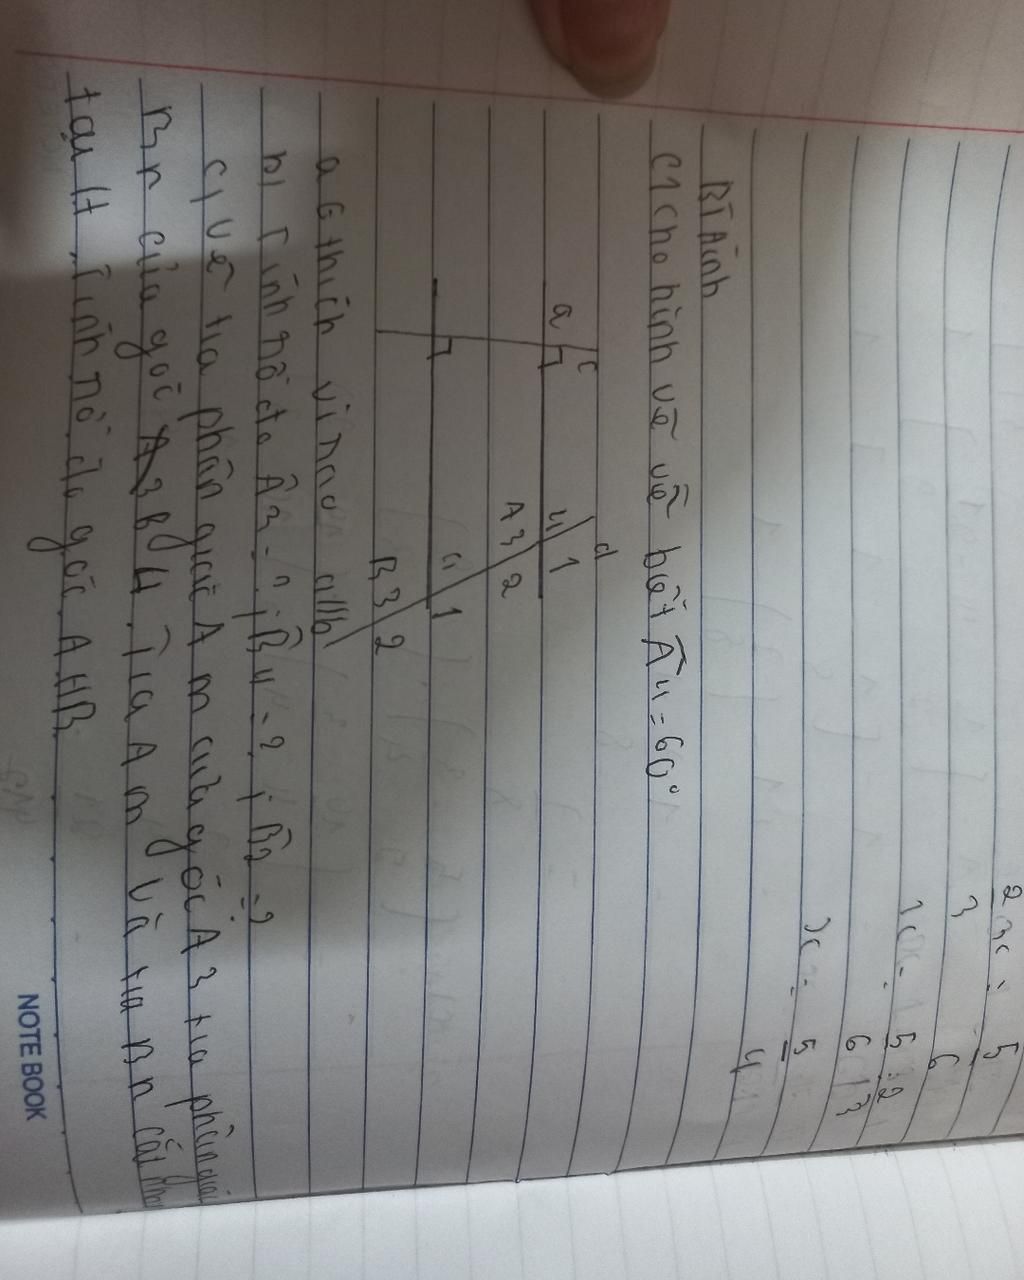 2 x = 5
3 6
x = 5 : 2
6 3
x = 5
4
BT Hình
C1 cho hình vẽ vẽ biết Â4 = 60°
c d
a 4 1
A 3 2
4 1
B 3 2
a Githích vì sao a//b
b) Tính số đo Â3 = ? ; B̂4 = ? ; B̂2 = ?
c) vẽ tia phân giác Am của góc A3 tia phân giác
Bn của góc B4. Tia Am và tia Bn cắt nhau
tại H. Tính số đo góc AHB
NOTE BOOK